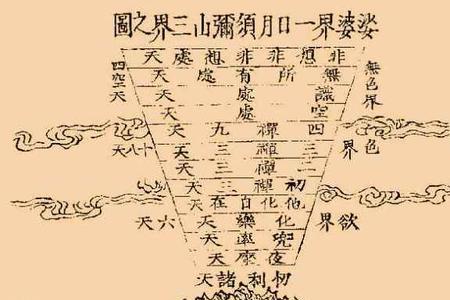 娑婆界一日月須彌山三界之圖
無色界
色界
欲界
非想非非想處天
無所有處天
識處天
空處天
四禪九天
三禪三天
二禪三天
初禪三天
他化自在天
化樂天
兜率天
夜摩天
忉利諸天
四空天
十八天
六天